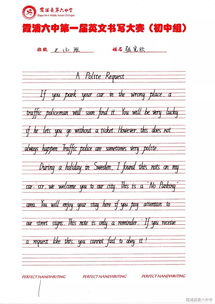 霞浦县第六中学
霞浦六中第一届英文书写大赛（初中组）
班级
姓名
A Polite Request
If you park your car in the wrong place, a
traffic policeman will soon find it. You will be very lucky
if he lets you go without a ticket. However this does not
always happen. Traffic police are sometimes very polite.
During a holiday in Sweden, I found this note on my
car: sir, we welcome you to our city. This is a "No Parking"
area. You will enjoy your stay here if you pay attention to
our street signs. This note is only a reminder. If you receive
a request like this, you cannot fail to obey it!
PERFECT HANDWRITING PERFECT HANDWRITING PERFECT HANDWRITING